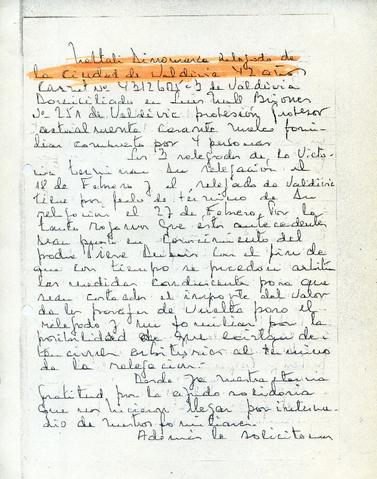 Dinamarca Relegado de
la Ciudad de Valdivia 42 años
Carnet Nº 4312601-3 de Valdivia
Domiciliado en Luis
Nº 251 de Valdivia profesión profesor
actualmente cesante nucleo fami-
liar compuesto por 4 personas.
Los 3 relegados de la Victo-
ria terminan su relegación el
18 de Febrero y el relegado de Valdivia
tiene por fecha de termino de su
relegacion el 27 de Febrero. Por lo
tanto rogamos que estos antecedentes
sean puestos en Conocimiento del
padre con el fin de
que con tiempo se puedan arbitrar
las medidas conducentes para que
sean costeados el importe del valor
de los pasajes de vuelta para el
relegado y un familiar por la
posibilidad de que existan de-
tenciones arbitrarias al termino
de la relegacion.
Desde ya nuestra eterna
gratitud, por la ayuda solidaria
que nos hicieron llegar por interme-
dio de nuestros familiares.
Además le solicitamos